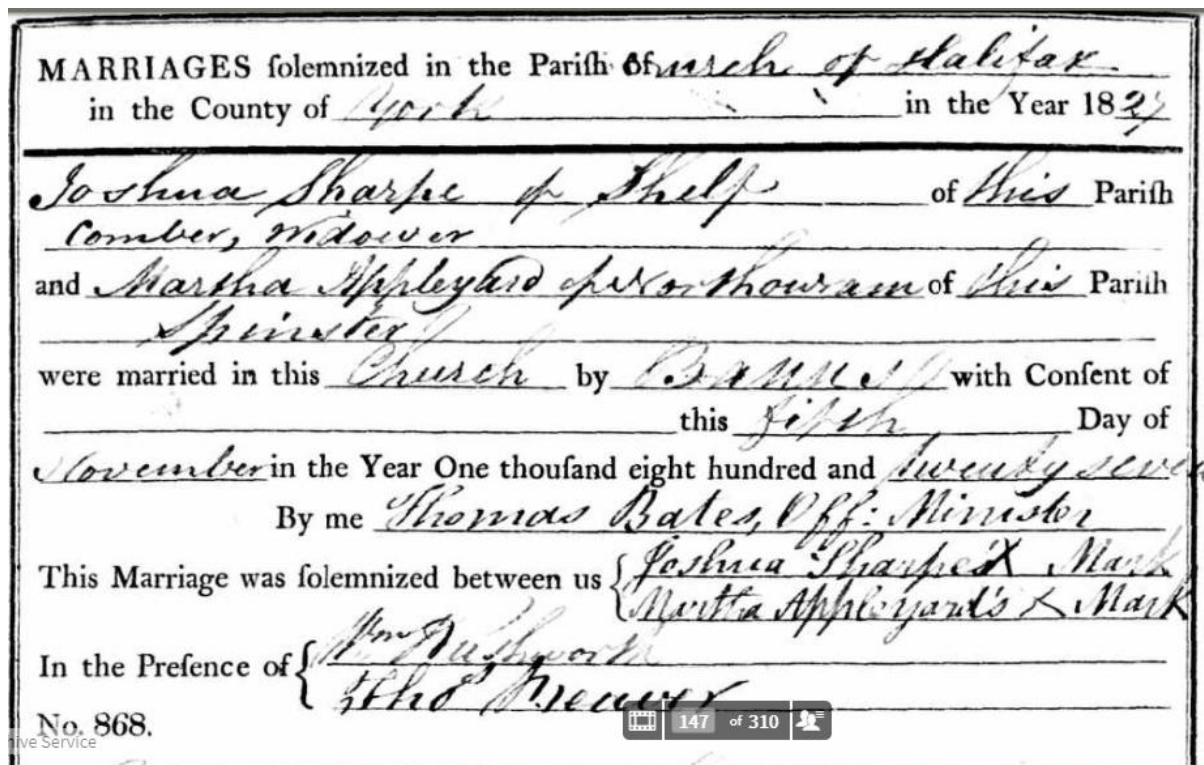 MARRIAGES solemnized in the Parish Church of Halifax
in the County of York in the Year 1827
Joshua Sharpe of Shelf of this Parish
Comber, Widower
and Martha Appleyard of Northowram of this Parish
Spinster
were married in this Church by Banns with Consent of
this fifth Day of
November in the Year One thousand eight hundred and twenty seven
By me Thomas Bates, Off: Minister
This Marriage was solemnized between us { Joshua Sharpe's X Mark
Martha Appleyard's X Mark
In the Presence of { Wm Rushworth
Thos
No. 868.
147 of 310
hive Service